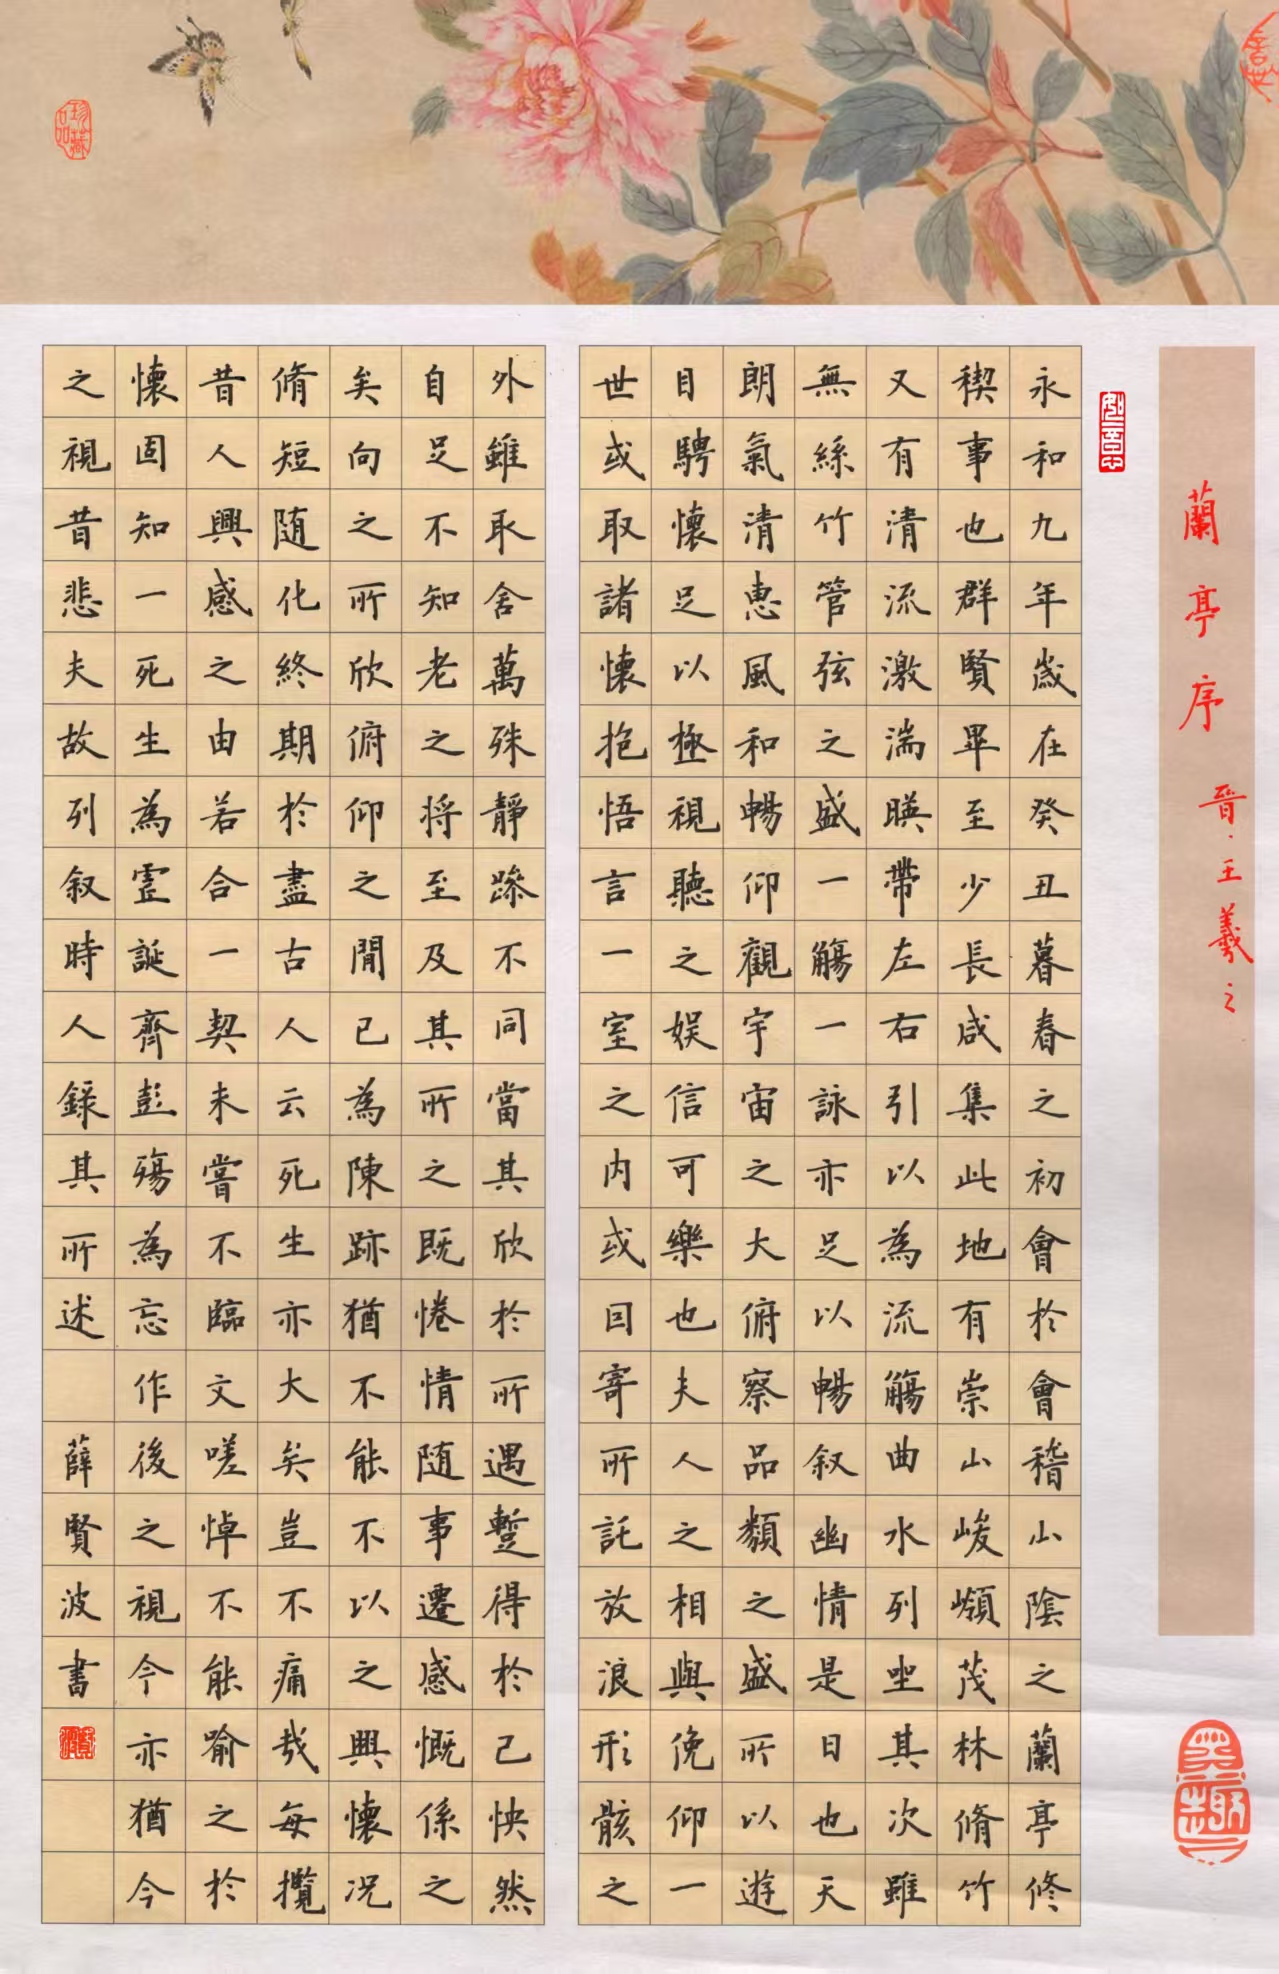 蘭亭序
晉·王羲之
永和九年歲在癸丑暮春之初會於會稽山陰之蘭亭修
稧事也群賢畢至少長咸集此地有崇山峻嶺茂林脩竹
又有清流激湍暎帶左右引以為流觴曲水列坐其次雖
無絲竹管弦之盛一觴一詠亦足以暢叙幽情是日也天
朗氣清惠風和暢仰觀宇宙之大俯察品類之盛所以遊
目騁懷足以極視聽之娛信可樂也夫人之相與俛仰一
世或取諸懷抱悟言一室之内或因寄所託放浪形骸之
外雖取舍萬殊靜躁不同當其欣於所遇蹔得於己怏然
自足不知老之將至及其所之既惓情随事遷感慨係之
矣向之所欣俯仰之閒已為陳跡猶不能不以之興懷况
脩短随化終期於盡古人云死生亦大矣豈不痛哉每攬
昔人興感之由若合一契未嘗不臨文嗟悼不能喻之於
懷固知一死生為虛誕齊彭殤為忘作後之視今亦猶今
之視昔悲夫故列叙時人錄其所述 薛賢波書
珍藏品
墨趣